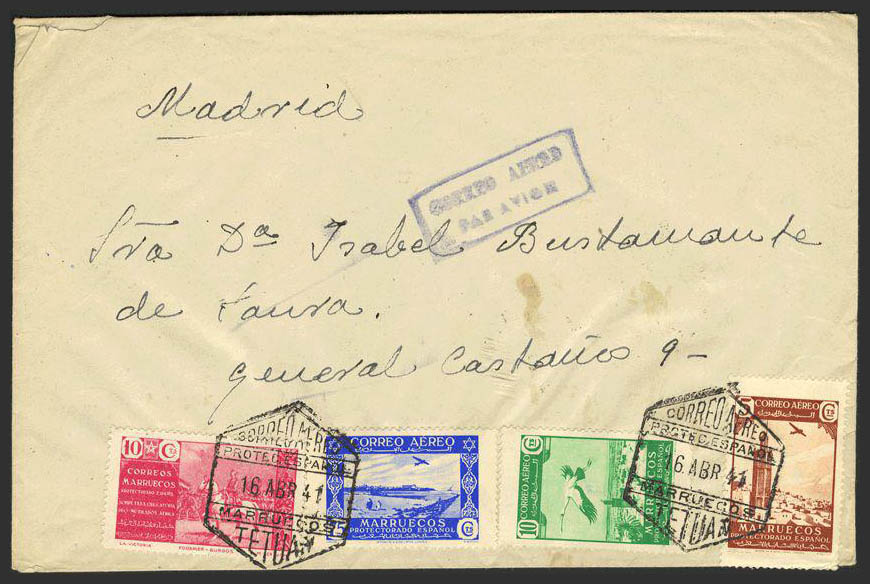 Madrid
CORREO AEREO
PAR AVION
Sra Dª Isabel Bustamante
de Faura.
General Castaños 9-
10 Cts
CORREOS
MARRUECOS
LA-VICTORIA FOURNIER-BURGOS
CORREO AEREO
PROTEC. ESPAÑOL
16 ABR 41
MARRUECOS
TETUAN
CORREO AÉREO
75 Cts
MARRUECOS
PROTECTORADO ESPAÑOL
CORREO AÉREO
10 Cts
MARRUECOS
PROTECTORADO ESPAÑOL
CORREO AEREO
PROTEC. ESPAÑOL
16 ABR 41
MARRUECOS
TETUAN
5 CORREO AÉREO Cts
MARRUECOS
PROTECTORADO ESPAÑOL